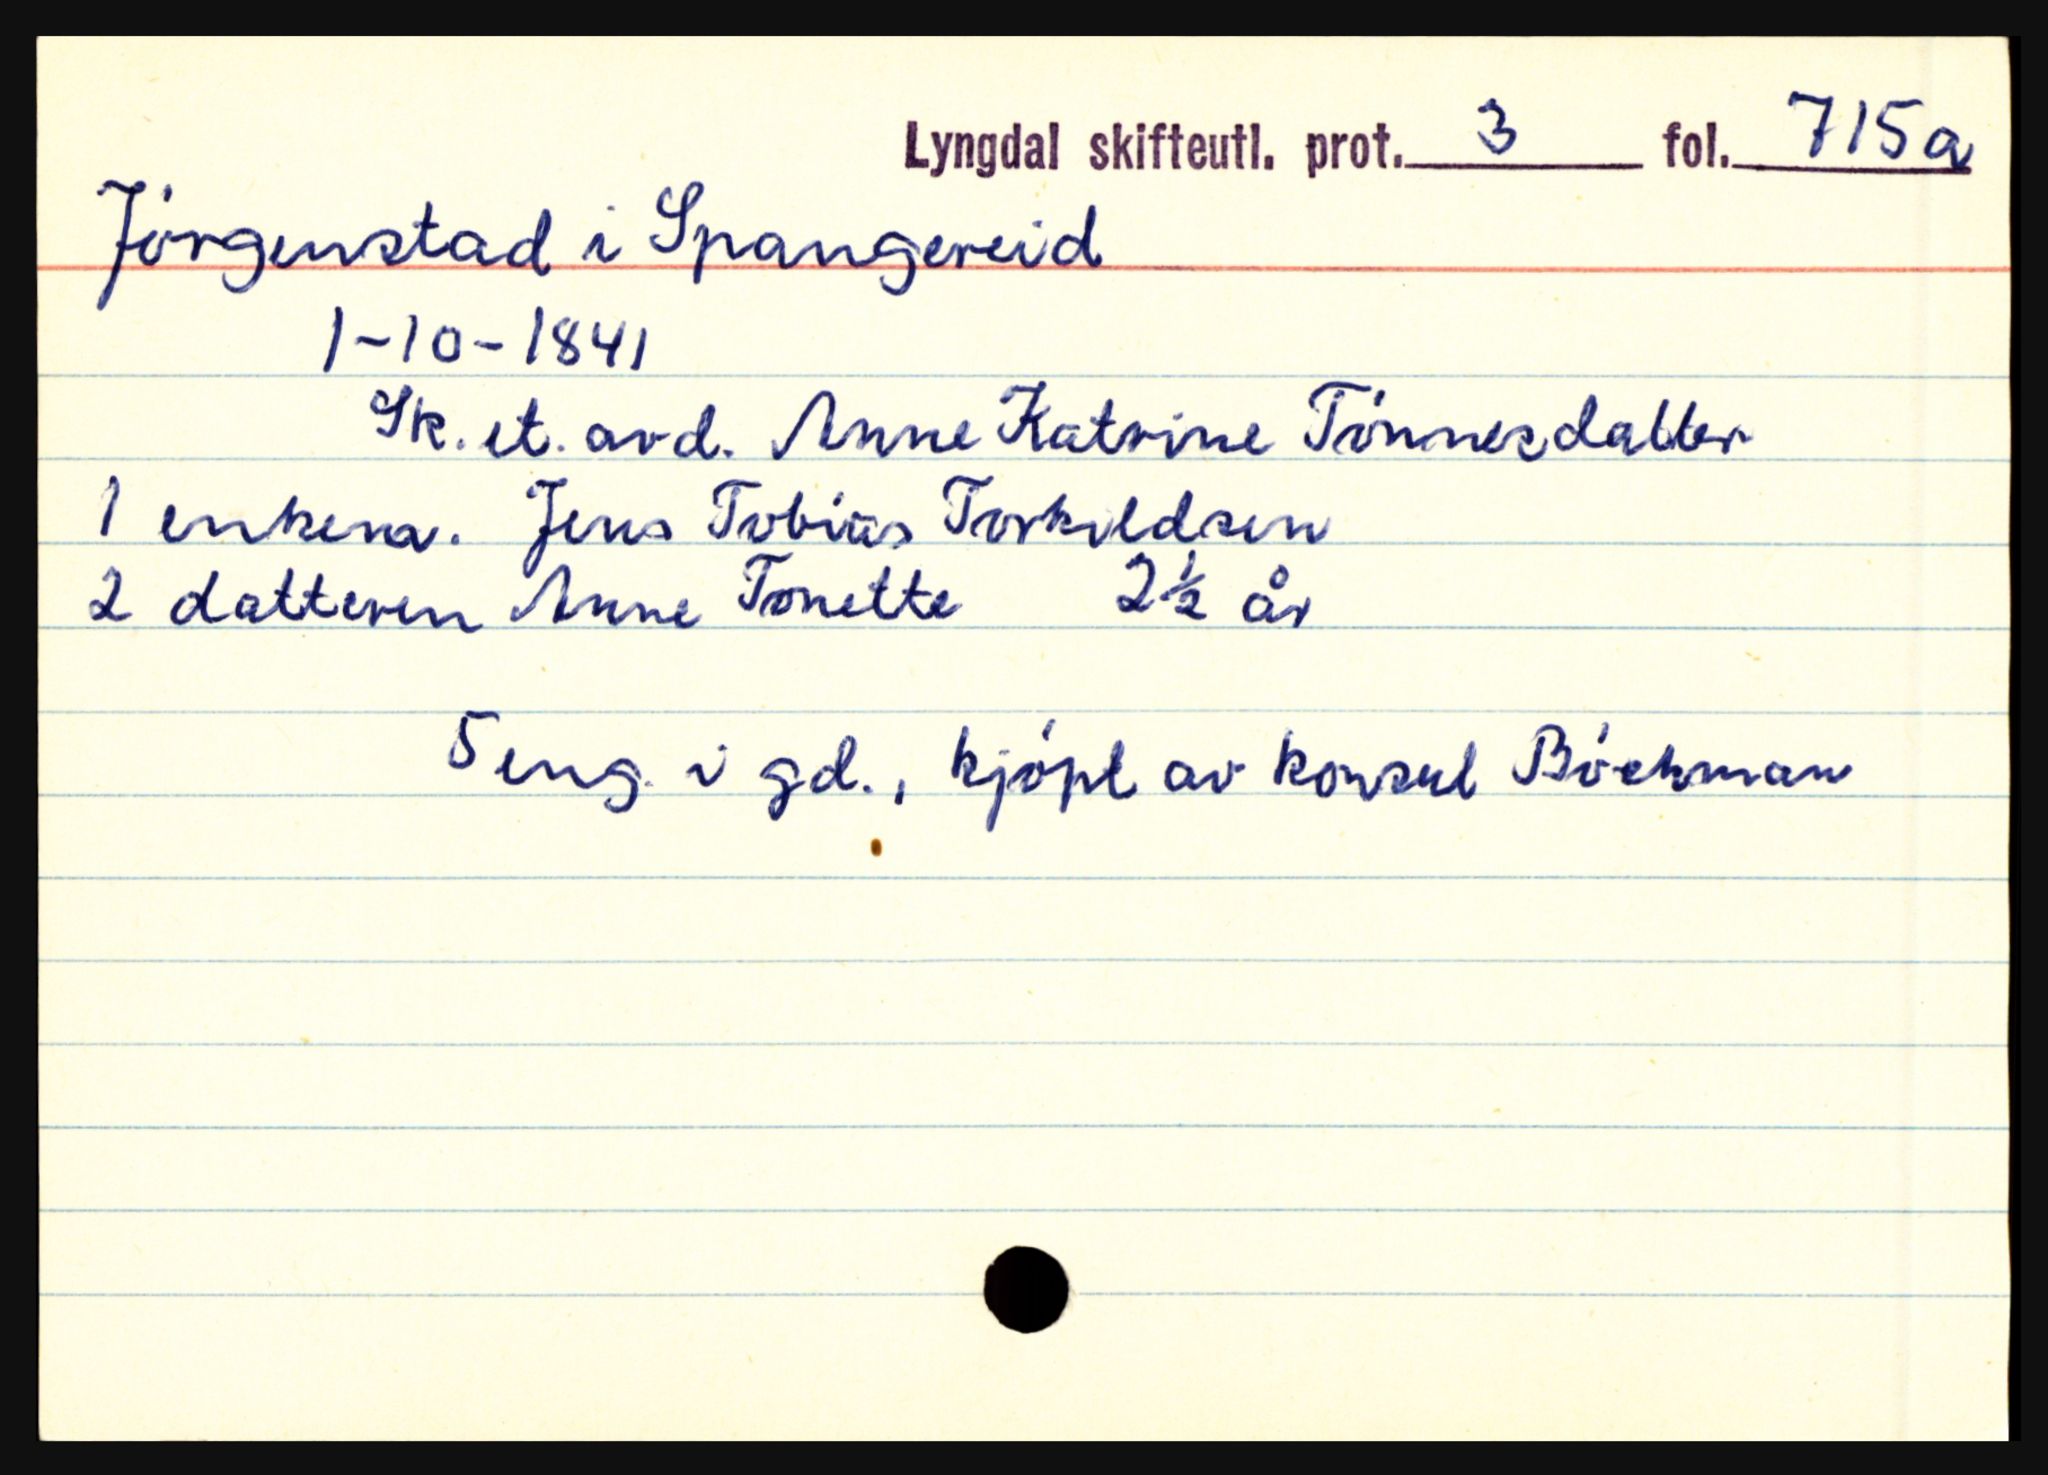 Lyngdal skifteutl. prot. 3 fol. 715a
Jórgenstad i Spangereid
1-10-1841
Sk. et. avd. Anne Katrine Tónnesdatter
1 enkem. Jens Tobias Torkildsen
2 datteren Anne Tonette 2½ år
5 eng. i gd., kjópt av konsul Bóckman